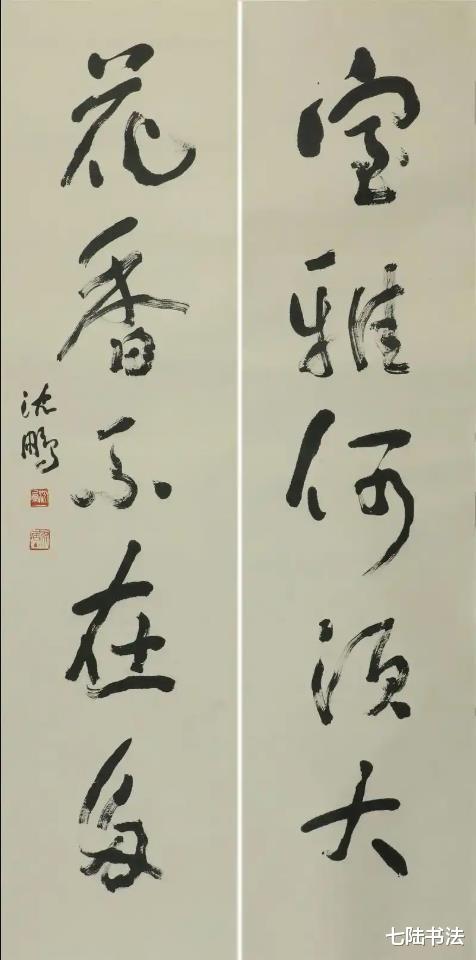 室雅何须大
花香不在多
沈鹏
七陆书法